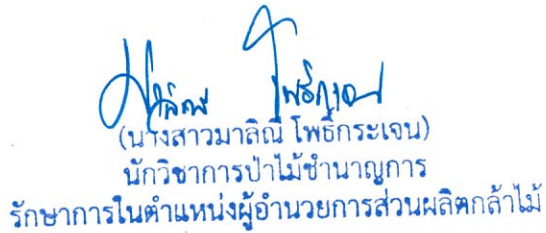 มาลิณี โพธิ์กระเจน
(นางสาวมาลิณี โพธิ์กระเจน)
นักวิชาการป่าไม้ชำนาญการ
รักษาการในตำแหน่งผู้อำนวยการส่วนผลิตกล้าไม้